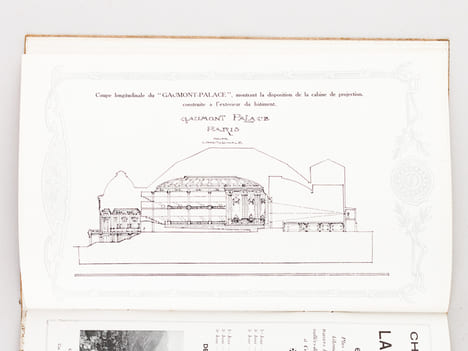 Coupe longitudinale du "GAUMONT-PALACE", montrant la disposition de la cabine de projection,
construite à l'extérieur du bâtiment.
GAUMONT PALACE
PARIS
COUPE
LONGITUDINALE
CH
LA